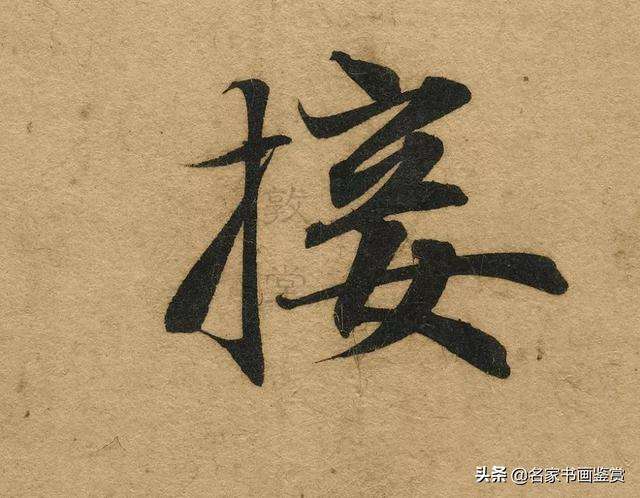 接
敦
堂
头条 @名家书画鉴赏